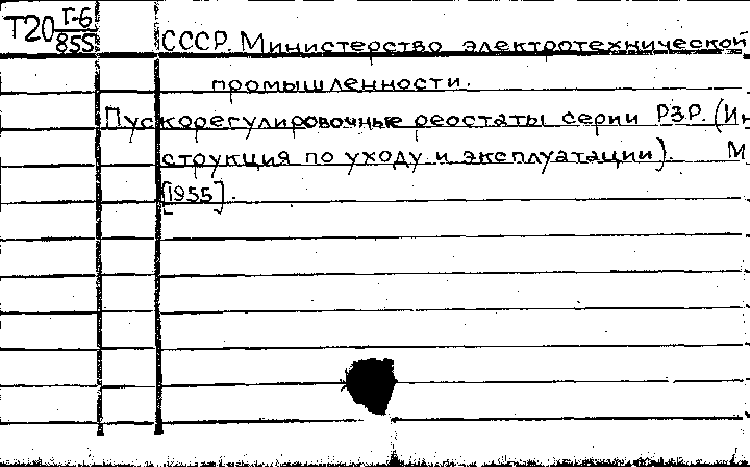 Т20 Т-6/855
СССР. Министерство электротехнической
промышленности.
Пускорегулировочные реостаты серии РЗР. (Ин
струкция по уходу и эксплуатации). М
[1955].